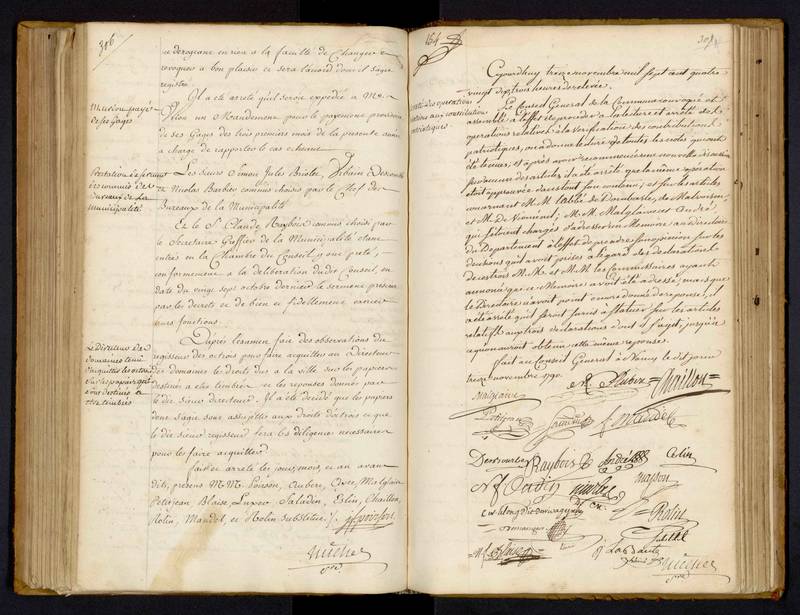 306
ne derogeant en rien a la faculté de Changer et
revoquer a bon plaisir ce sera l'accord dont il s'agit
registré
Mr Arlon payé
de ses Gages
Il a été arreté qu'il seroit expedié a Mr
Arlon un Mandement pour le payement provisoire
de ses Gages des trois premiers mois de la presente année
a charge de rapporter le cas echeant.
Prestation de serment
des commis des
bureaux de la
municipalité
Les Sieurs Simon Jules Briolet, Urbain
et Nicolas Barbier commis choisis par le Chef des
Bureaux de la Municipalité
Et le Sr Claude Raybois commis choisi par
le Secretaire Greffier de la Municipalité étant
entrés en la Chambre du Conseil y ont preté,
conformement a la deliberation dudit Conseil, en
date du vingt sept octobre dernier le serment prescrit
par les decrets et de bien et fidellement exercer
leurs fonctions.
Le Directeur des
domaines tenu
d'acquitter les octrois
sur les papiers
destinés a
etre timbrés
Depuis lexamen fait des observations du
regisseur des octrois pour faire acquitter au Directeur
des domaines les droits dus a la ville sur les papiers
destinés a etre timbrés et les reponses données par
le dit Sieur directeur. Il a eté decidé que les papiers
dont s'agit sont assujettis aux droits d'octrois et que
le dit sieur regisseur fera les diligences necessaires
pour les faire acquitter
fait et arreté les jour, mois, et an avant
dits, presens MM. Poirson, Aubert, Oxée, Malglaive
Petitjean, Blaise, Luxer, Saladin, Eslin, Chaillon,
Rolin, Mandel, et Rolin substitut. / . Poirson.
Nicher
gre.
307
Cejourd'huy treize novembre mil sept cent quatre
vingt dix trois heures de relevée.
operations
relatives aux contributions
patriotiques
Le Conseil General de la Commune convoqué et
assemblé a l'effet de proceder a la lecture et arreté des
operations relatives a la verification des contributions
patriotiques, on a donné lecture de toutes les cotes qui ont
été lues, et après avoir recommencé une nouvelle
par chacun des articles, il a été arreté que la même operation
etoit approuvée dans tout son contenu; et sur les articles
concernant M. M. l'abbé de Dombasle, de Malvoisin
et M. de Viomenil; M. M. Malglaive et André
qui s'étoient chargés d'adresser un Memoire au directoire
du Departement a l'effet de prendre son opinion sur les
decisions qu'il avoit prises a l'egard des declarations
de ces trois M. M. et M. M. les Commissaires ayant
annoncé que ce Memoire avoit été adressé; mais que
le Directoire n'avoit point encore donné de reponse, il
a été arreté qu'il seroit sursis a statuer sur les articles
relatifs aux trois declarations dont il s'agit, jusqu'a
ce qu'on auroit obtenu cette même reponse.
fait au Conseil General a Nancy le dit jour
treize novembre 1790.
Aubert
Chaillon
Malglaive
Poirson
Saladin
Mandel
Raybois
André
Eslin
Oudin
masson
Rolin
Demangeot
Blaise
Nicher
gre